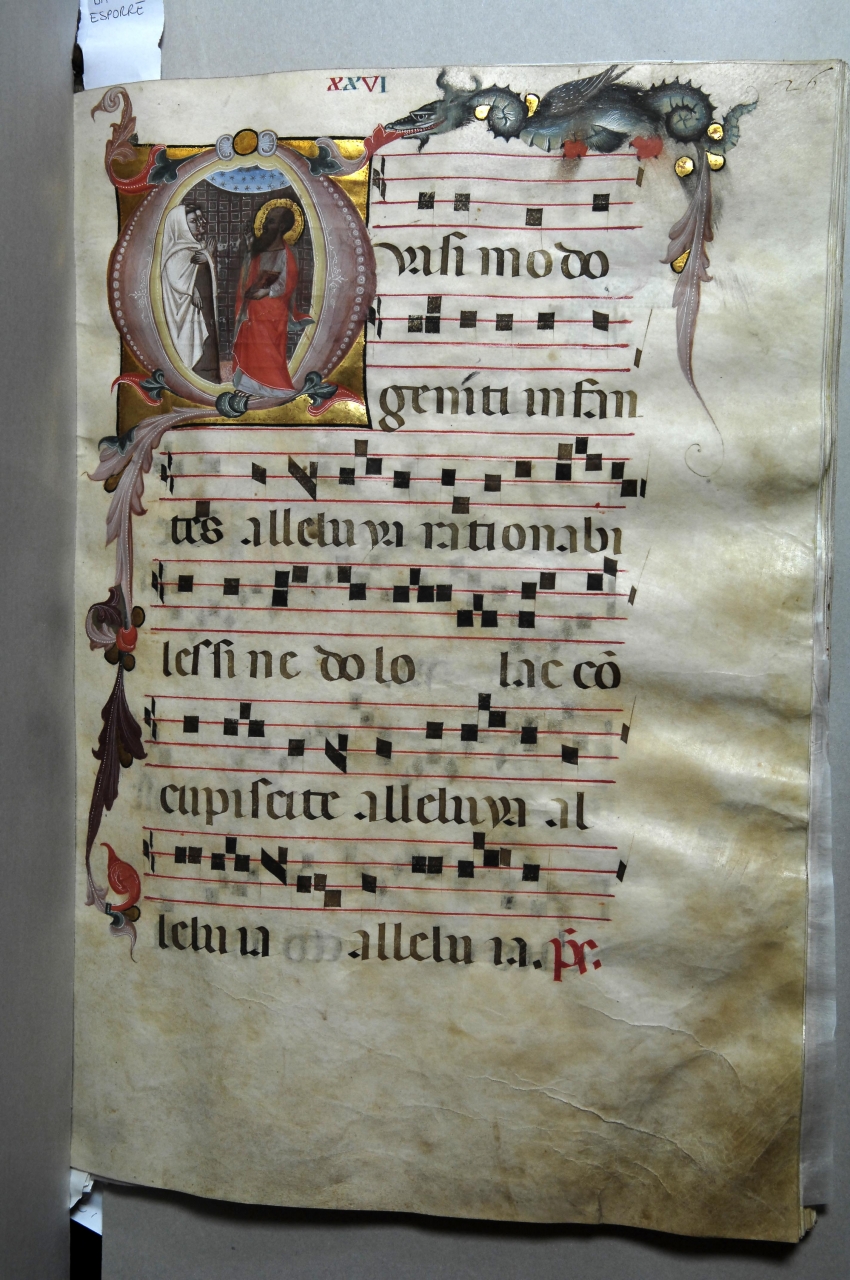 ESPORRE
XXVI
26
Quasi modo
geniti infan
tes alleluya rationabi
les sine dolo lac cō
cupiscite alleluya al
leluia alleluia. ps.